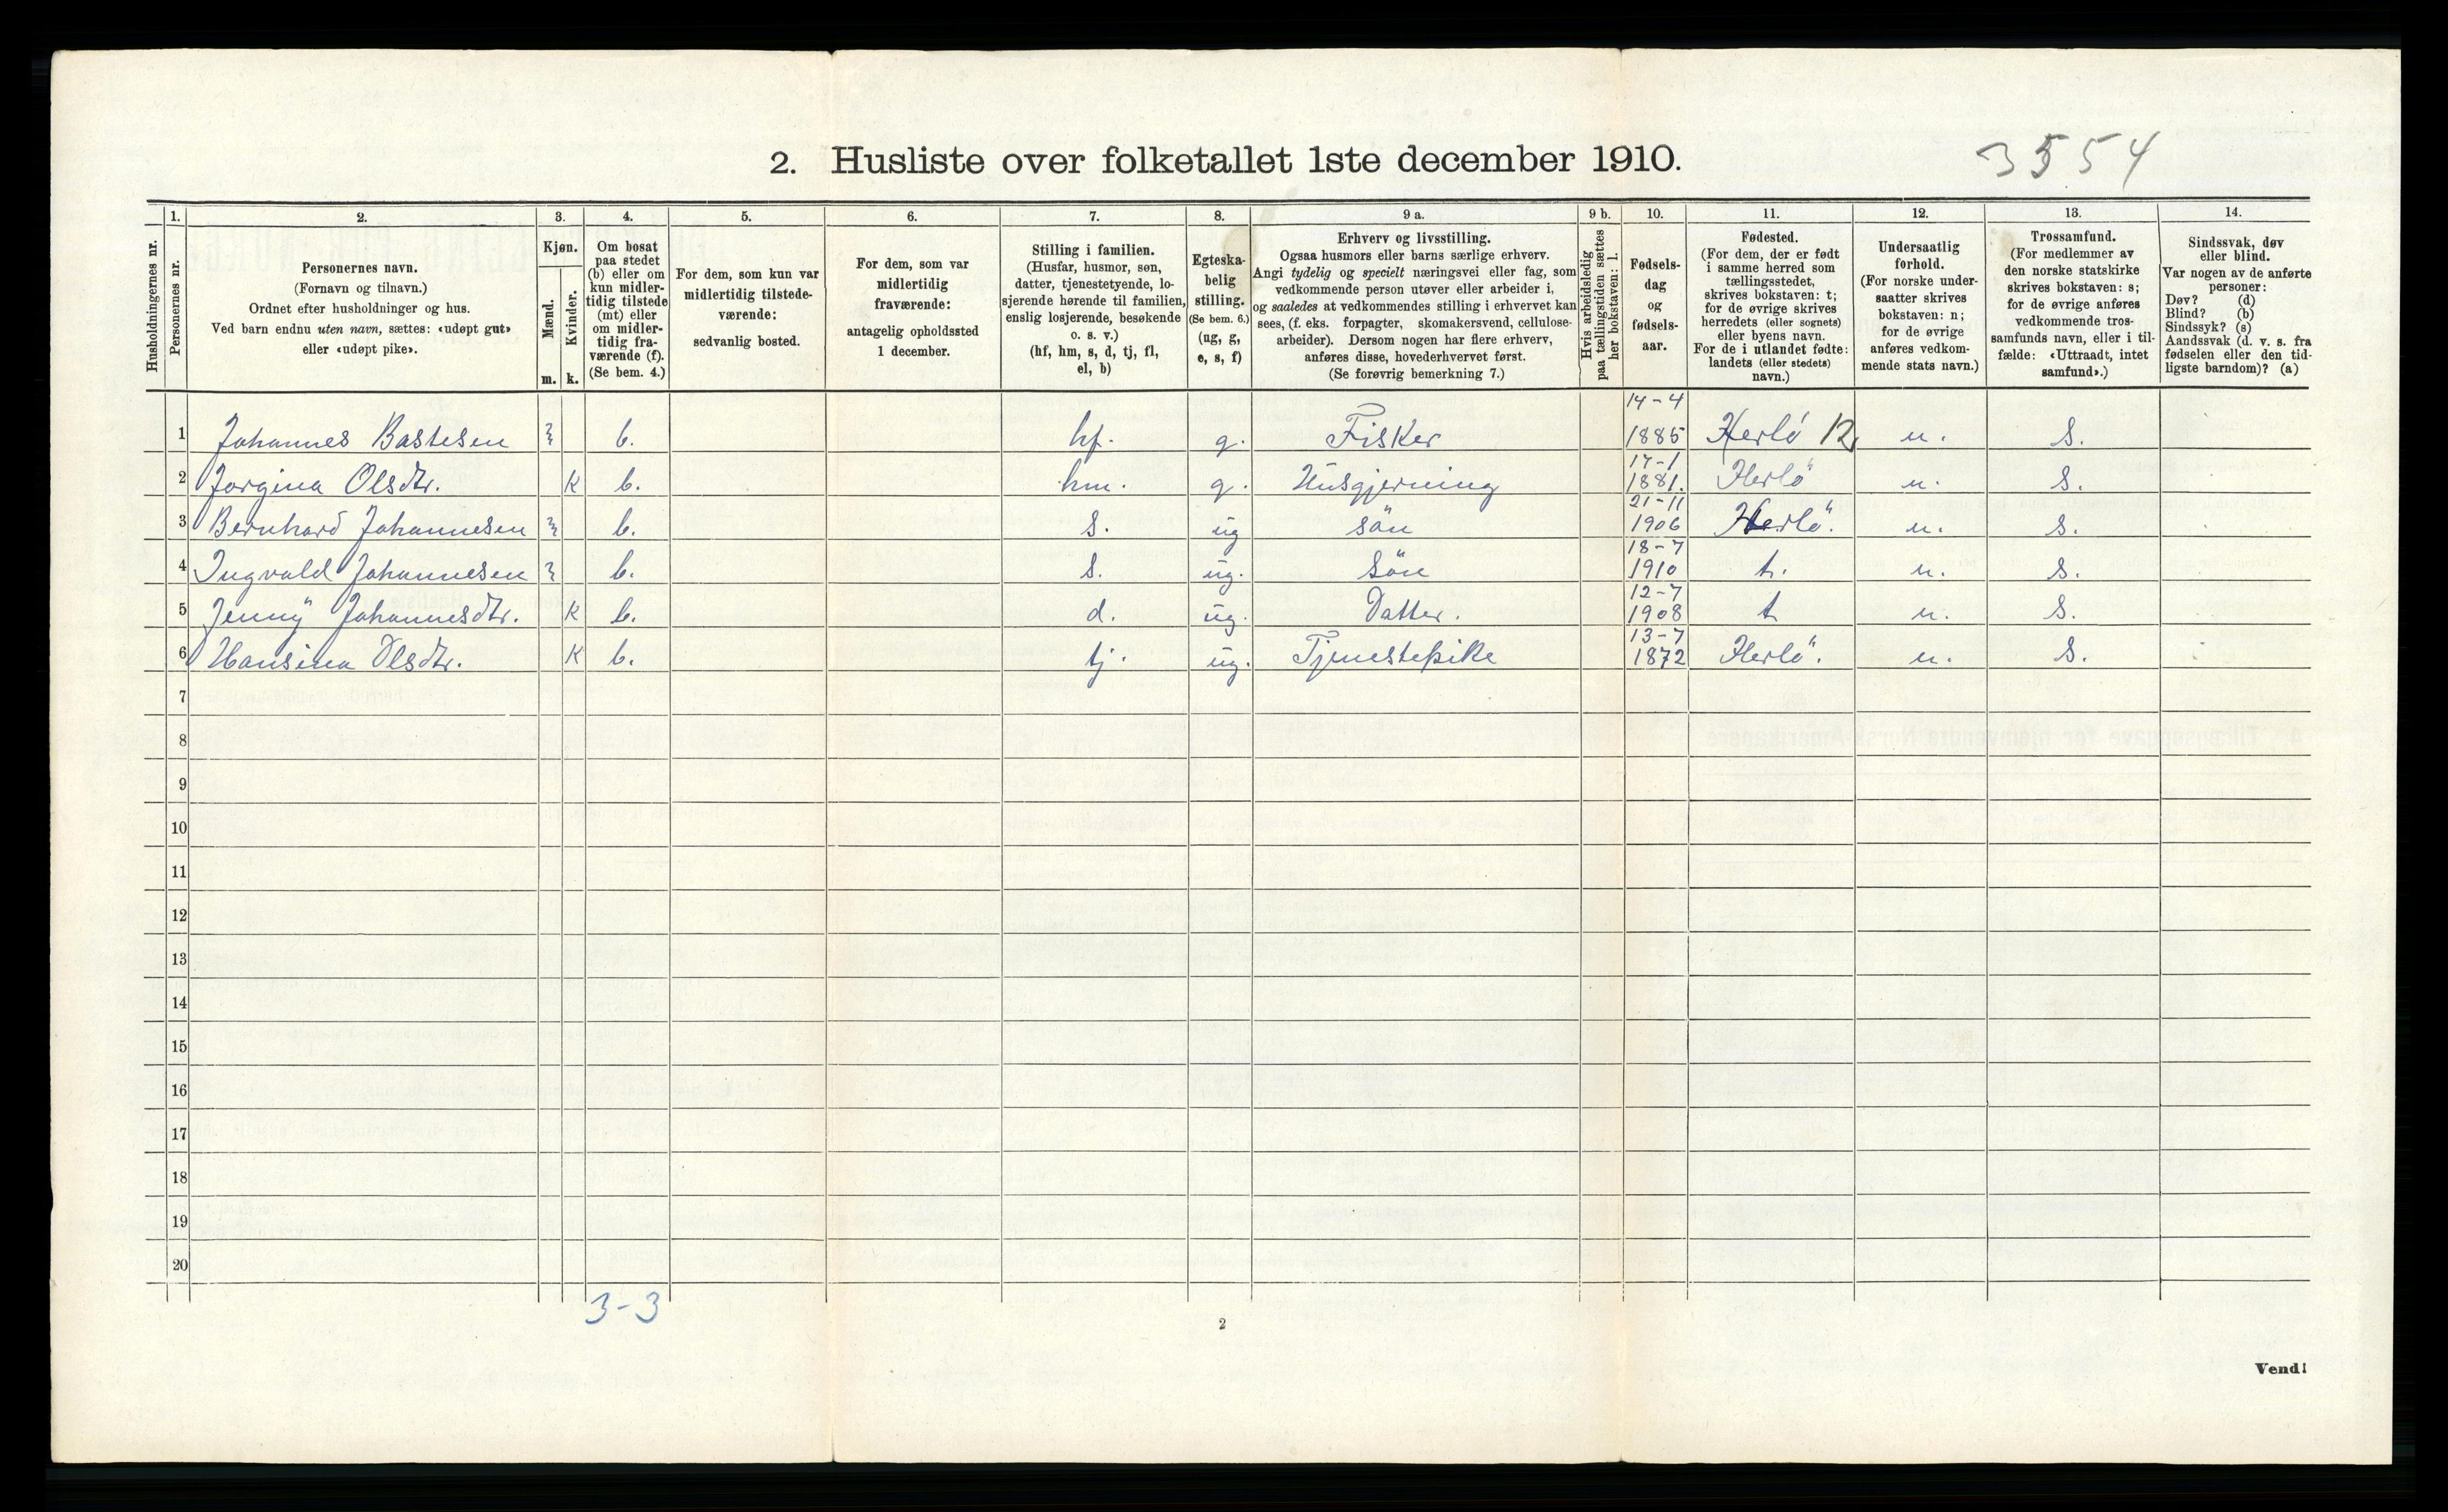 2. Husliste over folketallet 1ste december 1910.
3554
Husholdningernes nr.
1.
Personernes nr.
2.
Personernes navn.
(Fornavn og tilnavn.)
Ordnet efter husholdninger og hus.
Ved barn endnu uten navn, sættes: «udøpt gut»
eller «udøpt pike».
3.
Kjøn.
Mænd.
Kvinder.
m. k.
4.
Om bosat
paa stedet
(b) eller om
kun midler-
tidig tilstede
(mt) eller
om midler-
tidig fra-
værende (f).
(Se bem. 4.)
5.
For dem, som kun var
midlertidig tilstede-
værende:
sedvanlig bosted.
6.
For dem, som var
midlertidig
fraværende:
antagelig opholdssted
1 december.
7.
Stilling i familien.
(Husfar, husmor, søn,
datter, tjenestetyende, lo-
sjerende hørende til familien,
enslig losjerende, besøkende
o. s. v.)
(hf, hm, s, d, tj, fl,
el, b)
8.
Egteska-
belig
stilling.
(Se bem. 6.)
(ug, g,
e, s, f)
9 a.
Erhverv og livsstilling.
Ogsaa husmors eller barns særlige erhverv.
Angi tydelig og specielt næringsvei eller fag, som
vedkommende person utøver eller arbeider i,
og saaledes at vedkommendes stilling i erhvervet kan
sees, (f. eks. forpagter, skomakersvend, cellulose-
arbeider). Dersom nogen har flere erhverv,
anføres disse, hovederhvervet først.
(Se forøvrig bemerkning 7.)
9 b.
Hvis arbeidsledig
paa tællingstiden sættes
her bokstaven: l.
10.
Fødsels-
dag
og
fødsels-
aar.
11.
Fødested.
(For dem, der er født
i samme herred som
tællingsstedet,
skrives bokstaven: t;
for de øvrige skrives
herredets (eller sognets)
eller byens navn.
For de i utlandet fødte:
landets (eller stedets)
navn.)
12.
Undersaatlig
forhold.
(For norske under-
saatter skrives
bokstaven: n;
for de øvrige
anføres vedkom-
mende stats navn.)
13.
Trossamfund.
(For medlemmer av
den norske statskirke
skrives bokstaven: s;
for de øvrige anføres
vedkommende tros-
samfunds navn, eller i til-
fælde: «Uttraadt, intet
samfund».)
14.
Sindssvak, døv
eller blind.
Var nogen av de anførte
personer:
Døv? (d)
Blind? (b)
Sindssyk? (s)
Aandssvak (d. v. s. fra
fødselen eller den tid-
ligste barndom)? (a)
1 Johannes Bastesen m b. hf. g. Fisker 14-4 1885 Herlö 12 n. S.
2 Jorgina Olsdtr. K b. hm. g. Husgjerning 17-1 1881. Herlö n. S.
3 Bernhard Johannesen m b. s. ug Sön 21-11 1906 Herlö. n. S.
4 Ingvald Johannesen m b. s. ug. Sön 18-7 1910 t. n. S.
5 Jenny Johannesdtr. K b. d. ug. Datter. 12-7 1908 t n. S.
6 Hansina Olsdtr. K b. tj. ug. Tjenestepike 13-7 1872 Herlö. n. S.
7
8
9
10
11
12
13
14
15
16
17
18
19
20
3-3
2
Vend!